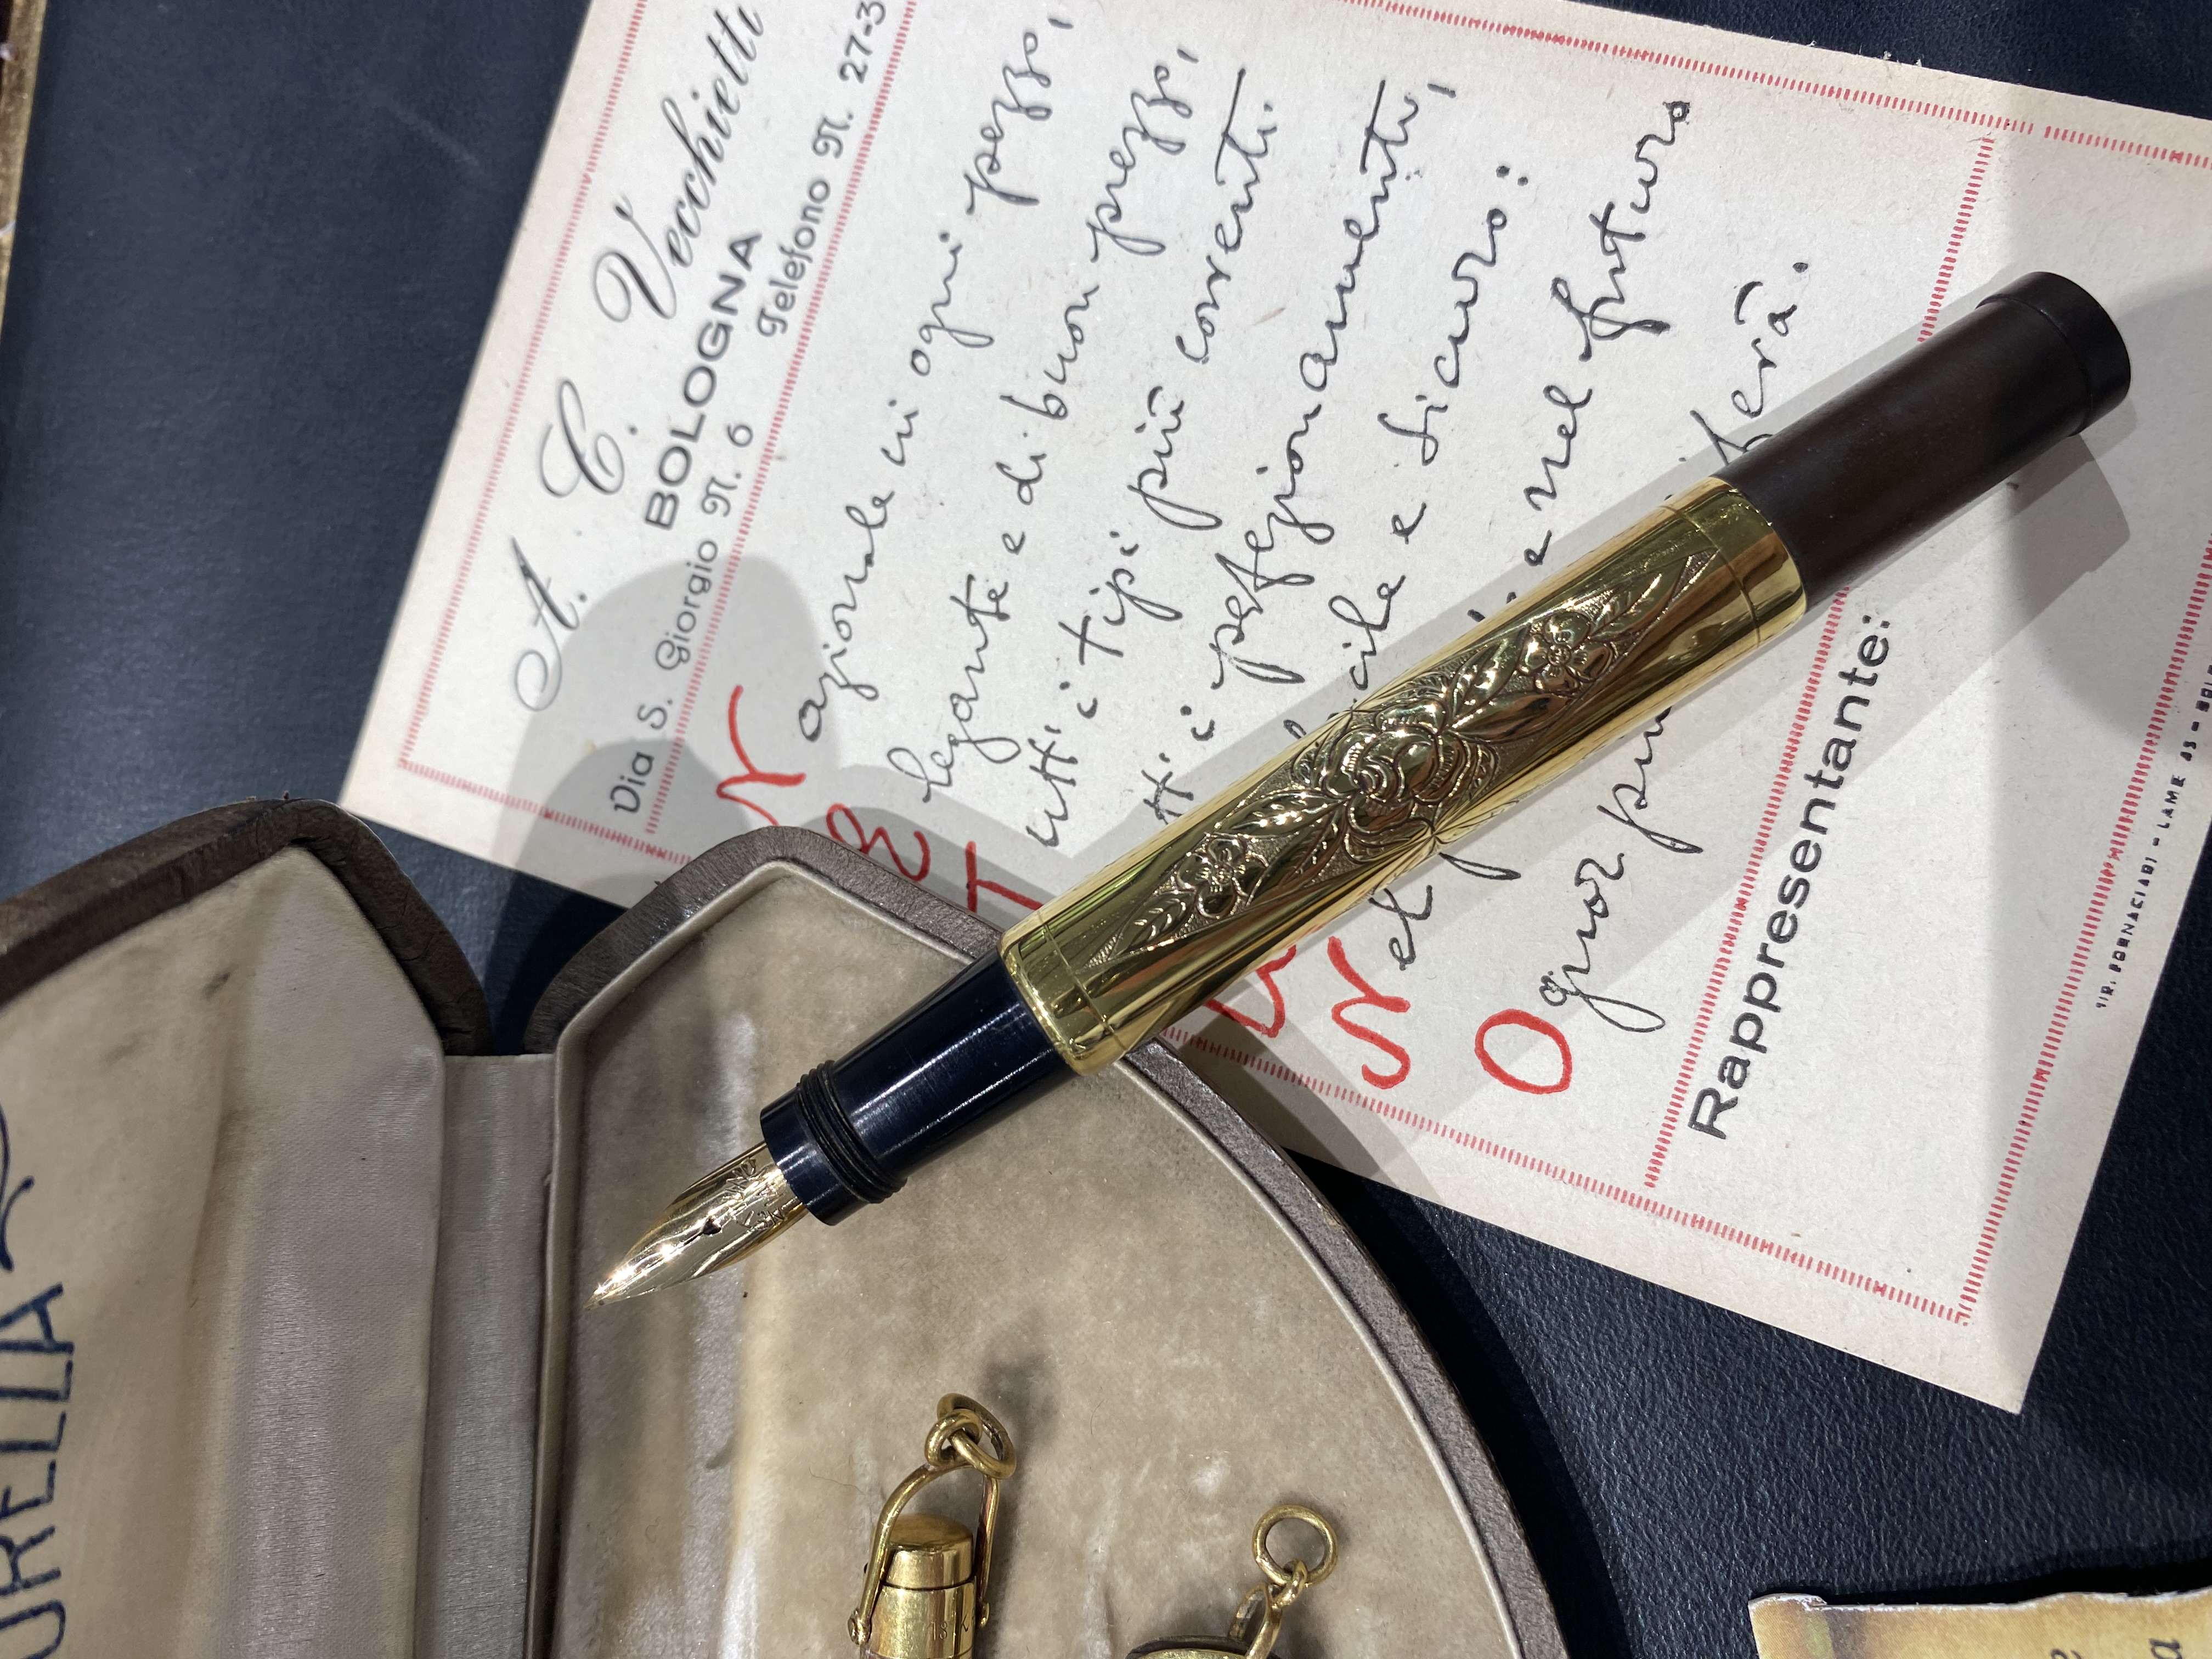 A. C. Vecchietti
BOLOGNA
Via S. Giorgio N. 6 Telefono N. 27-3
Nazionale in ogni pezzo,
Elegante e di buon prezzo,
Tutti i tipi più correnti.
tti i perfezionamenti,
cile e sicuro:
Nel e nel futuro
Ognor
Rappresentante:
LAME 35 - BOL
URELLIA